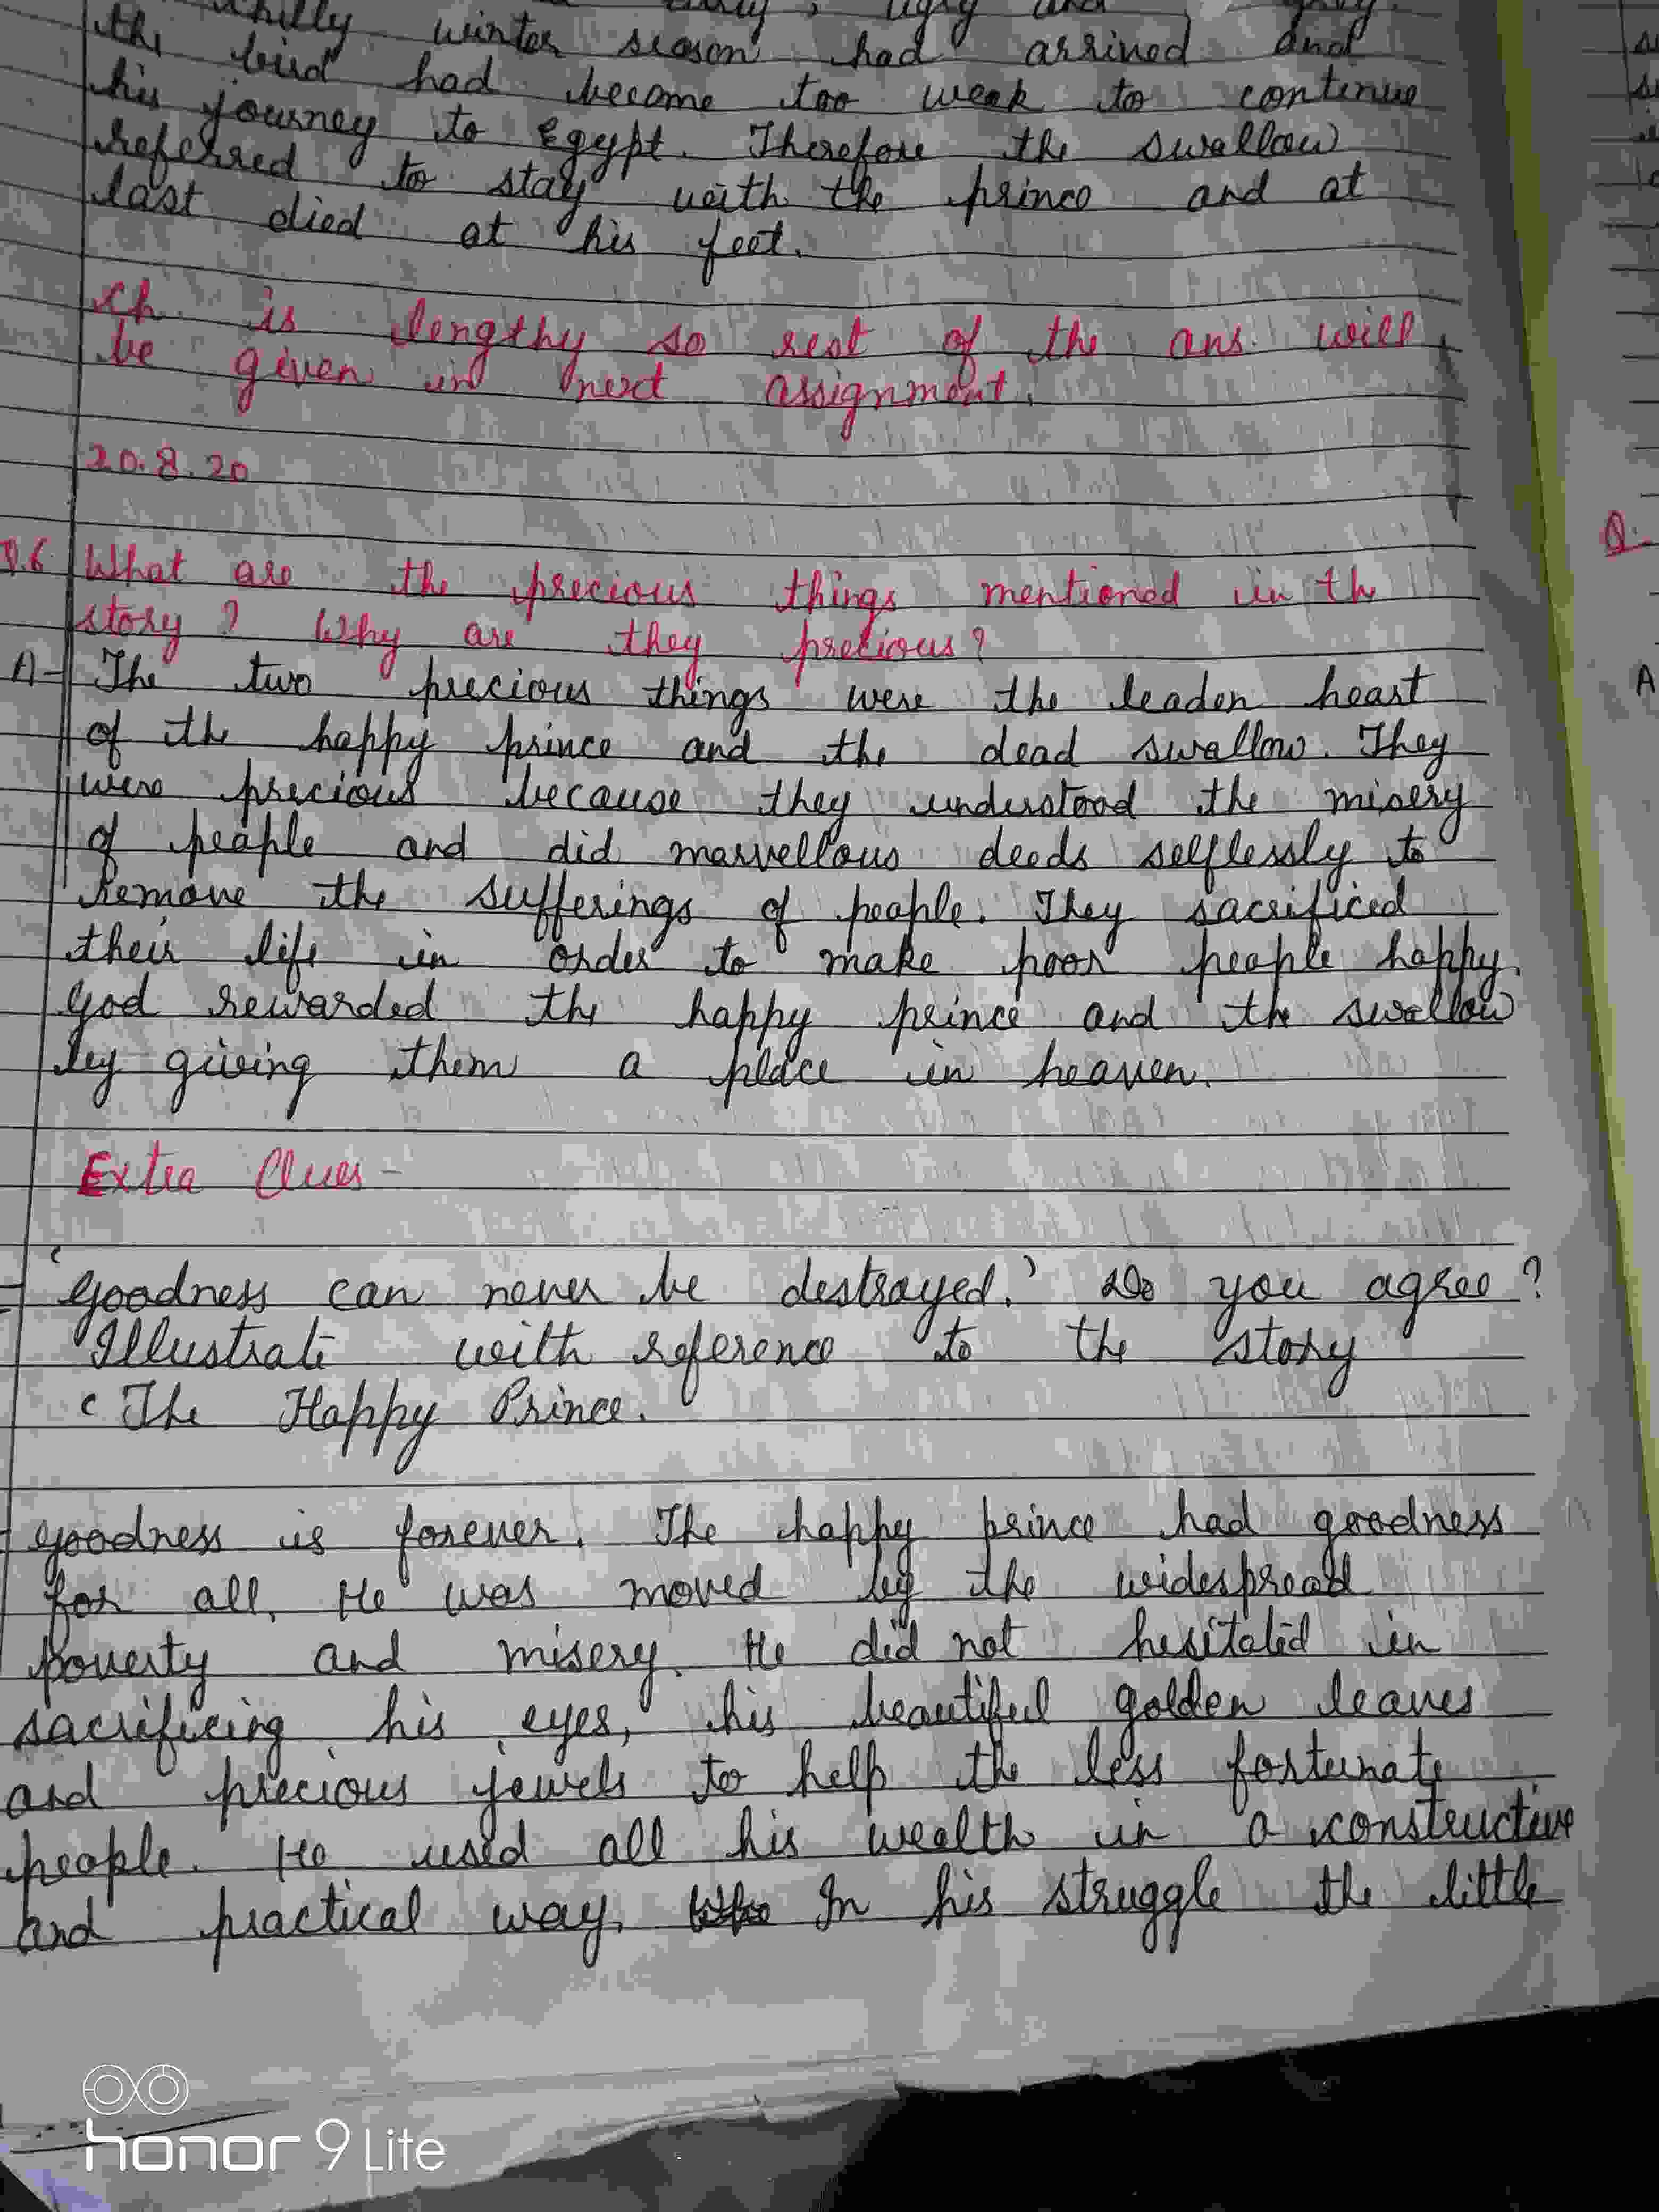 chilly winter season had arrived and
the bird had become too weak to continue
his journey to Egypt. Therefore the swallow
referred to stay with the prince and at
last died at his feet.
Ch is lengthy so rest of the ans will
be given in next assignment.
20.8.20
Q.6 What are the precious things mentioned in the
story? Why are they precious?
A- The two precious things were the leaden heart
of the happy prince and the dead swallow. They
were precious because they understood the misery
of people and did marvellous deeds selflessly to
remove the sufferings of people. They sacrificed
their life in order to make poor people happy.
God rewarded the happy prince and the swallow
by giving them a place in heaven.
Extra Ques-
'Goodness can never be destroyed.' Do you agree?
Illustrate with reference to the story
'The Happy Prince.
Goodness is forever. The happy prince had goodness
for all. He was moved by the widespread
poverty and misery. He did not hesitated in
sacrificing his eyes, his beautiful golden leaves
and precious jewels to help the less fortunate
people. He used all his wealth in a constructive
and practical way. In his struggle the little
Q.
A
honor 9 Lite